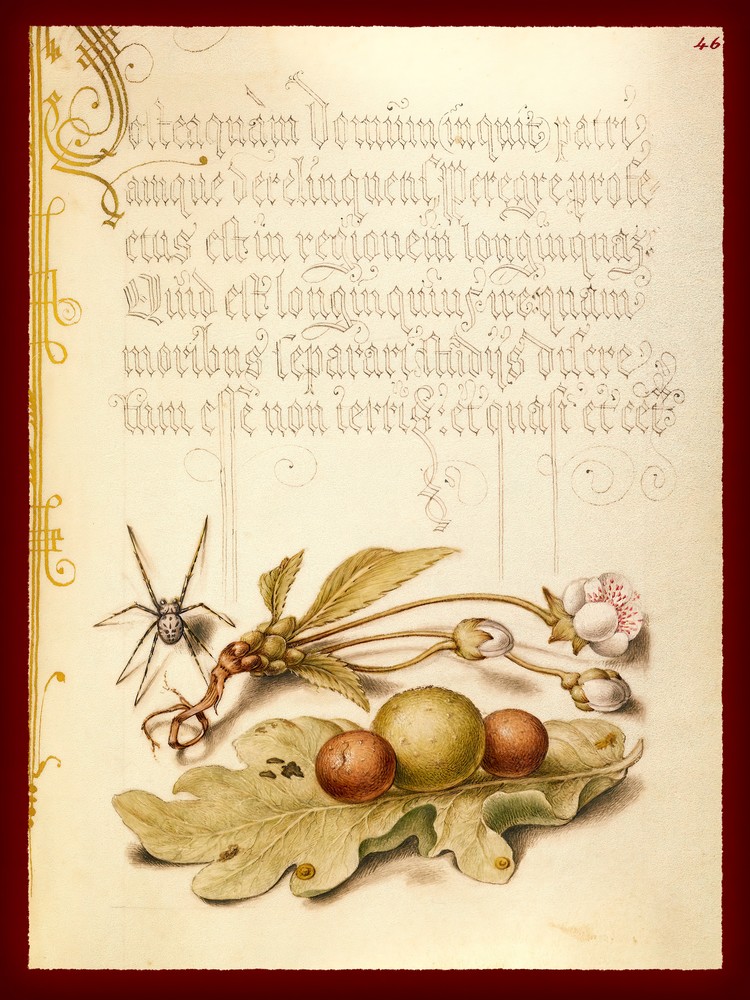 Posteaquàm Domum (inquit) patri,
amque derelinquens, Peregre profe-
ctus est in regionem longinquaz.
Quid est longinquius quam
moribus separari, studijs discre,
tum esse non terris: et quasi et cet
46